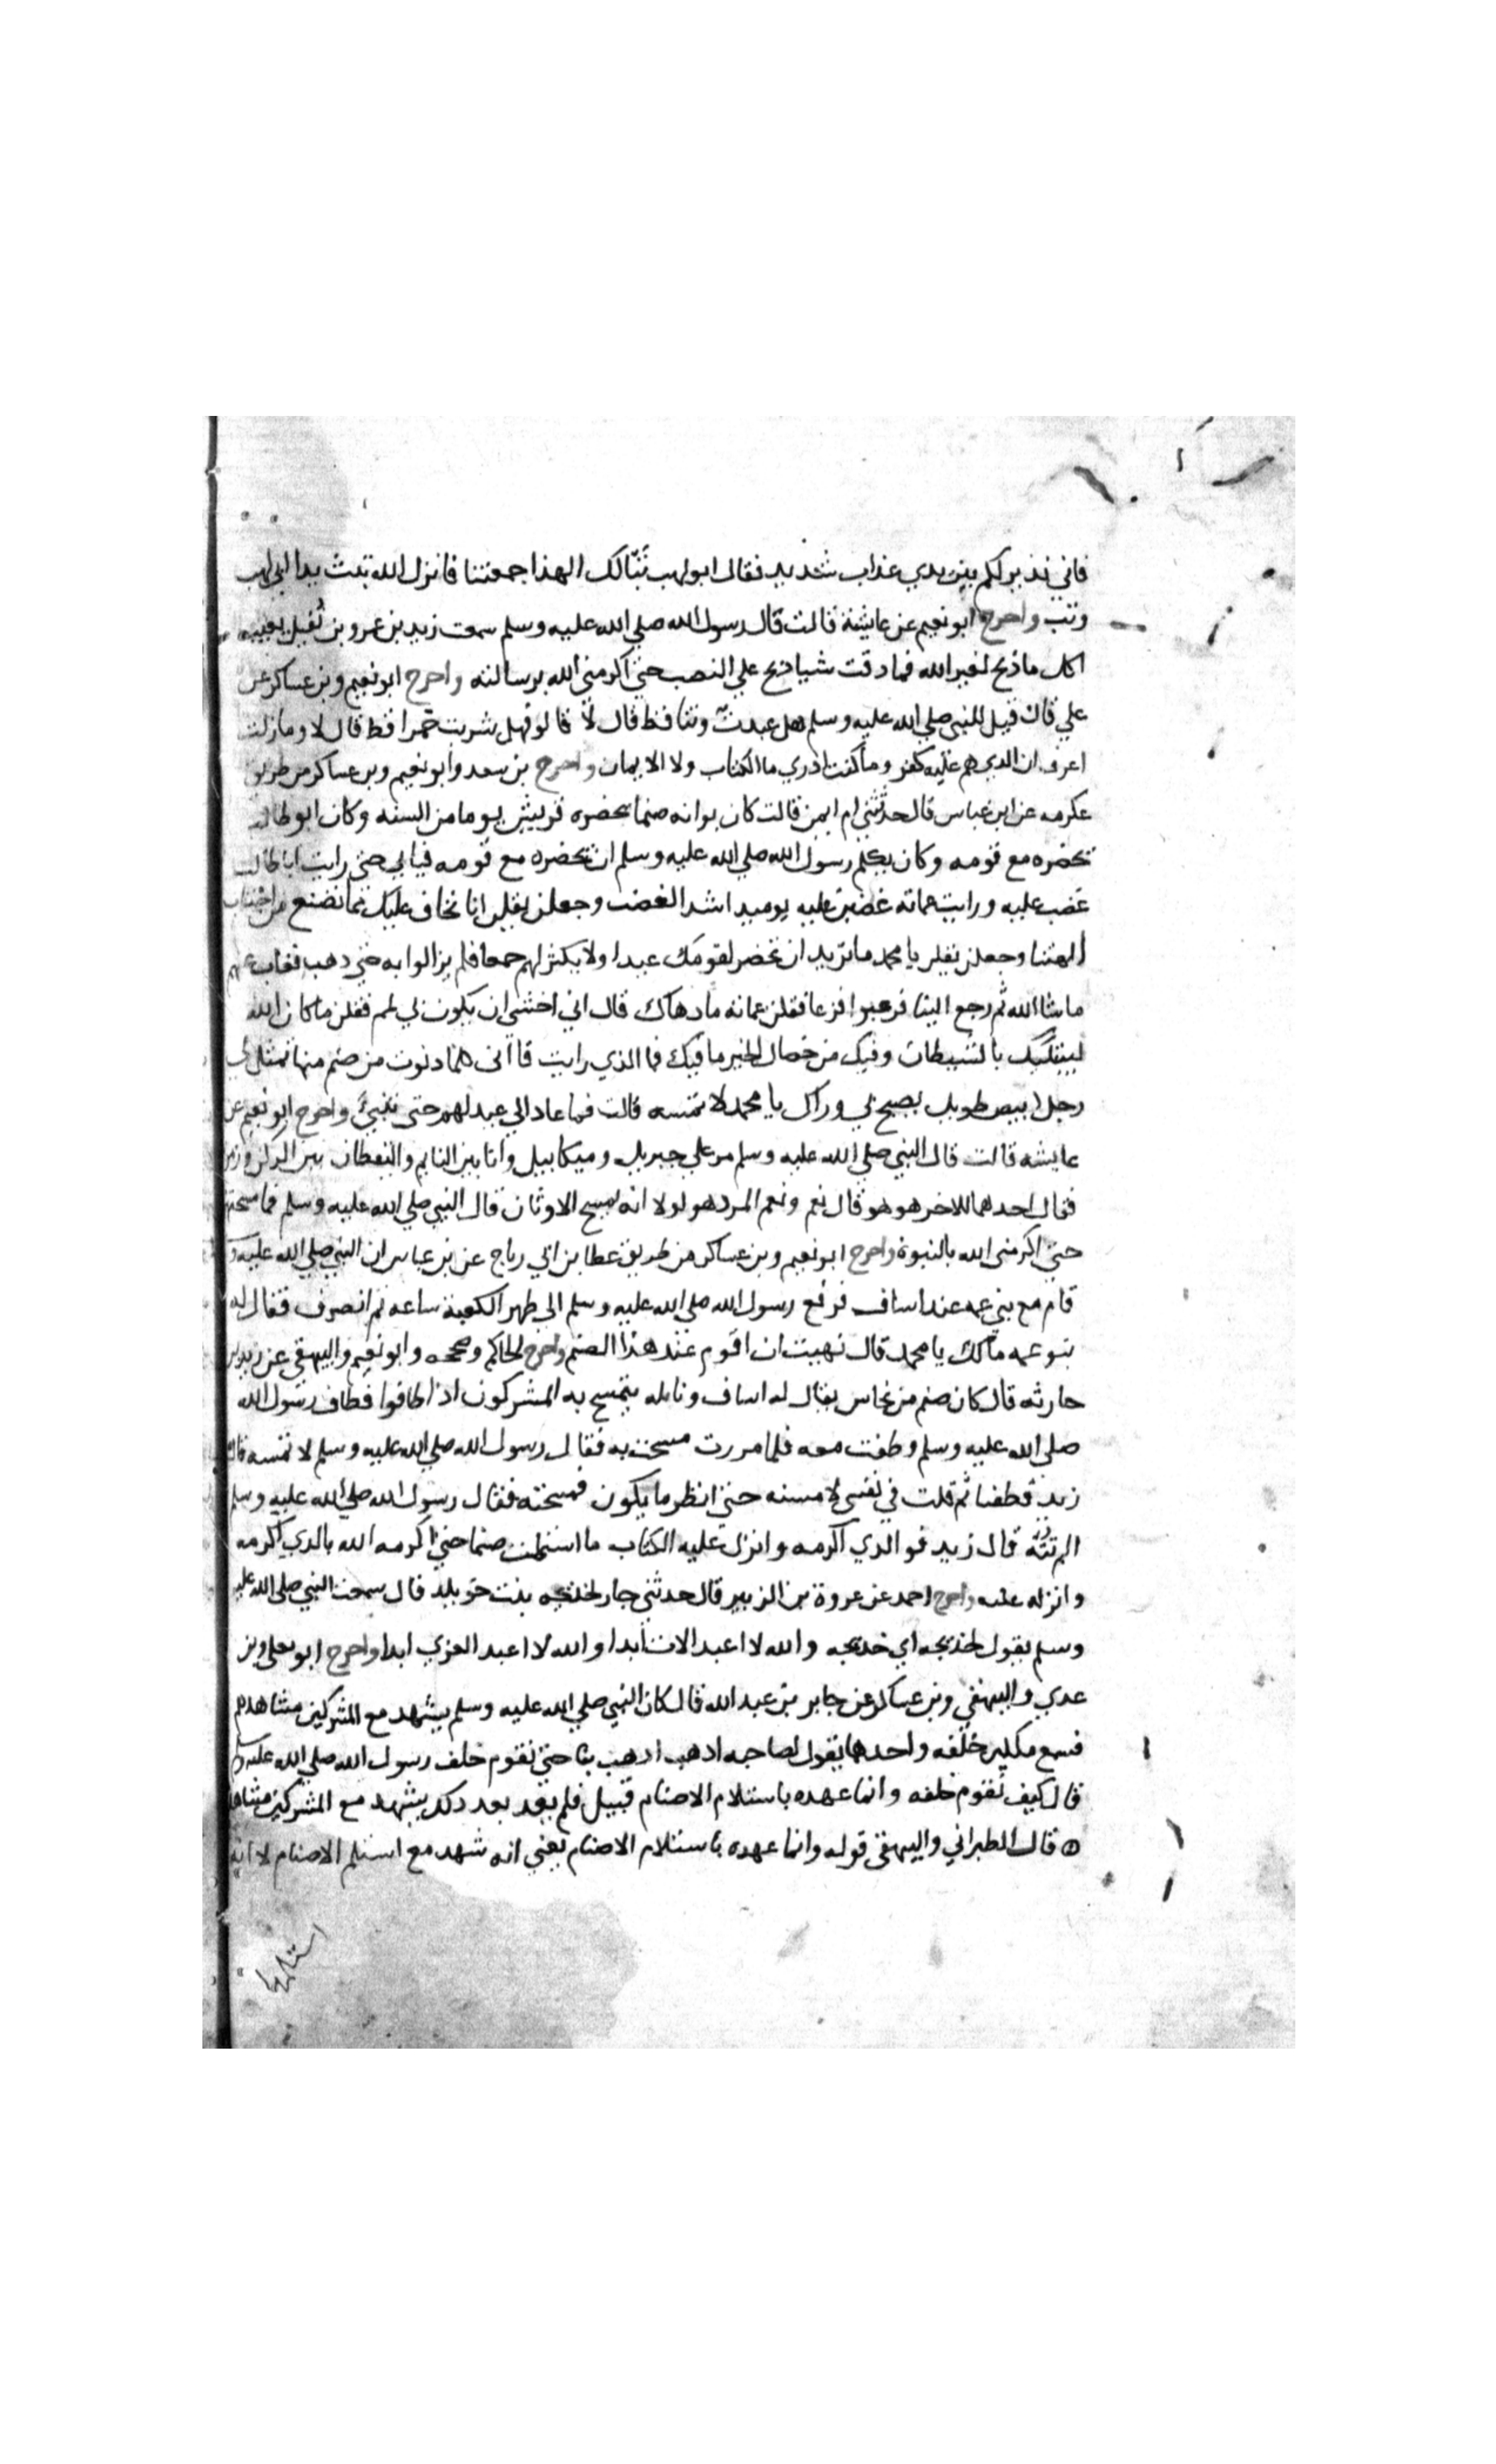 فاني نذير لكم بين يدي عذاب شديد فقال ابولهب تبّا لك الهذا جمعتنا فانزل الله تبت يدا ابي لهب
وتب واخرج ابونعيم عن عايشة قالت قال رسول الله صلي الله عليه وسلم سمعت زيد بن عمرو بن نُفيل يعيب
اكل ماذبح لغير الله فما دقت شيا ذبح علي النصب حتي اكرمني الله برسالته واخرج ابونعيم وبن عساكر عن
علي قال قيل للنبي صلي الله عليه وسلم هل عبدتّ وثنا قط قال لا قالو فهل شربت خمرا قط قال لا ومازلت
اعرف ان الدي هم عليه كفر وماكنت ادري ما الكتاب ولا الايمان واخرج بن سعد وابونعيم وبن عساكر من طريق
عكرمه عن ابن عباس قال حدثتني ام ايمن قالت كان بوانه صنما تحضره قريش يوما من السنه وكان ابوطالب
تحضره مع قومه وكان يكلم رسول الله صلي الله عليه وسلم ان تحضره مع قومه فيابي حتي رايت اباطالب
غضب عليه ورايت عماته غضبن عليه يوميد اشد الغضب وجعلن يقلن انا نخاف عليك مما تصنع من اجتناب
الهتنا وجعلن يقلن يا محمد ماتريد ان تحضر لقومك عيدا ولا يكثر لهم جمعا فلم يزالوا به حتي دهب فغاب عنهم
ماشا الله ثم رجع الينا فرعبوا فزعا فقلن عماته مادهاك قال اني اخشي ان يكون لي لمم فقلن ماكان الله
ليبتليك بالشيطان وفيك من خصال الخير مافيك فما الذي رايت قا اني كلما دنوت من صنم منها تمثل لي
رجل ابيض طويل يصيح لي وراك يا محمد لا تمسه قالت فما عاد الي عيد لهم حتي تنبئَ واخرج ابونعيم عن
عايشه قالت قال النبي صلي الله عليه وسلم مر علي جبريل وميكاييل وانا بين النايم واليقظان بين الركن وزمزم
فقال احدهما للاخر هو هو قال نعم ونعم المرد هو لولا انه يمسح الاوثان قال النبي صلي الله عليه وسلم فما مسحتهن
حتي اكرمني الله بالنبوة واخرج ابونعيم وبن عساكر من طريق عطا بن ابي رباح عن بن عباس ان النبي صلي الله عليه و
قام مع بني عمه عند اساف فرفع رسول الله صلي الله عليه وسلم الي ظهر الكعبة ساعه ثم انصرف فقال له
بنو عمه مالك يا محمد قال نهيت ان اقوم عند هذا الصنم واخرج الحاكم وصححه وابونعيم والبيهقي عن زيد بن
حارثه قال كان صنم من نحاس يقال له اساف ونايله يتمسح به المشركون اذا طافوا فطاف رسول الله
صلي الله عليه وسلم وطفت معه فلما مررت مسحت به فقال رسول الله صلي الله عليه وسلم لا تمسه قال
زيد فطفنا ثم قلت في نفسي لامسنه حتي انظر مايكون فمسحته فقال رسول الله صلي الله عليه وسلم
الم تنته قال زيد فو الدي اكرمه وانزل عليه الكتاب ما استلمت صنما حتي اكرمه الله بالدي اكرمه
وانزله عليه واخرج احمد عن عروة بن الزبير قال حدثني جار لخديجه بنت خويلد قال سمعت النبي صلي الله عليه
وسلم يقول لخديجه اي خديجه والله لا اعبد الات ابدا والله لا اعبد العزي ابدا واخرج ابو يعلي وبن
عدي والبيهقي وبن عساكر عن جابر بن عبد الله قال كان النبي صلي الله عليه وسلم يشهد مع المشركين مشاهدهم
فسمع ملكين خلفه واحدهما يقول لصاحبه ادهب ادهب بنا حتي نقوم خلف رسول الله صلي الله عليه وسلم
قال كيف نقوم خلفه وانما عهده باستلام الاصنام قبيل فلم يعد بعد دلك يشهد مع المشركين مشاهدهم
ه قال الطبراني والبيهقي قوله وانما عهده باستلام الاصنام يعني انه شهد مع استلم الاصنام لا انه
استلمها